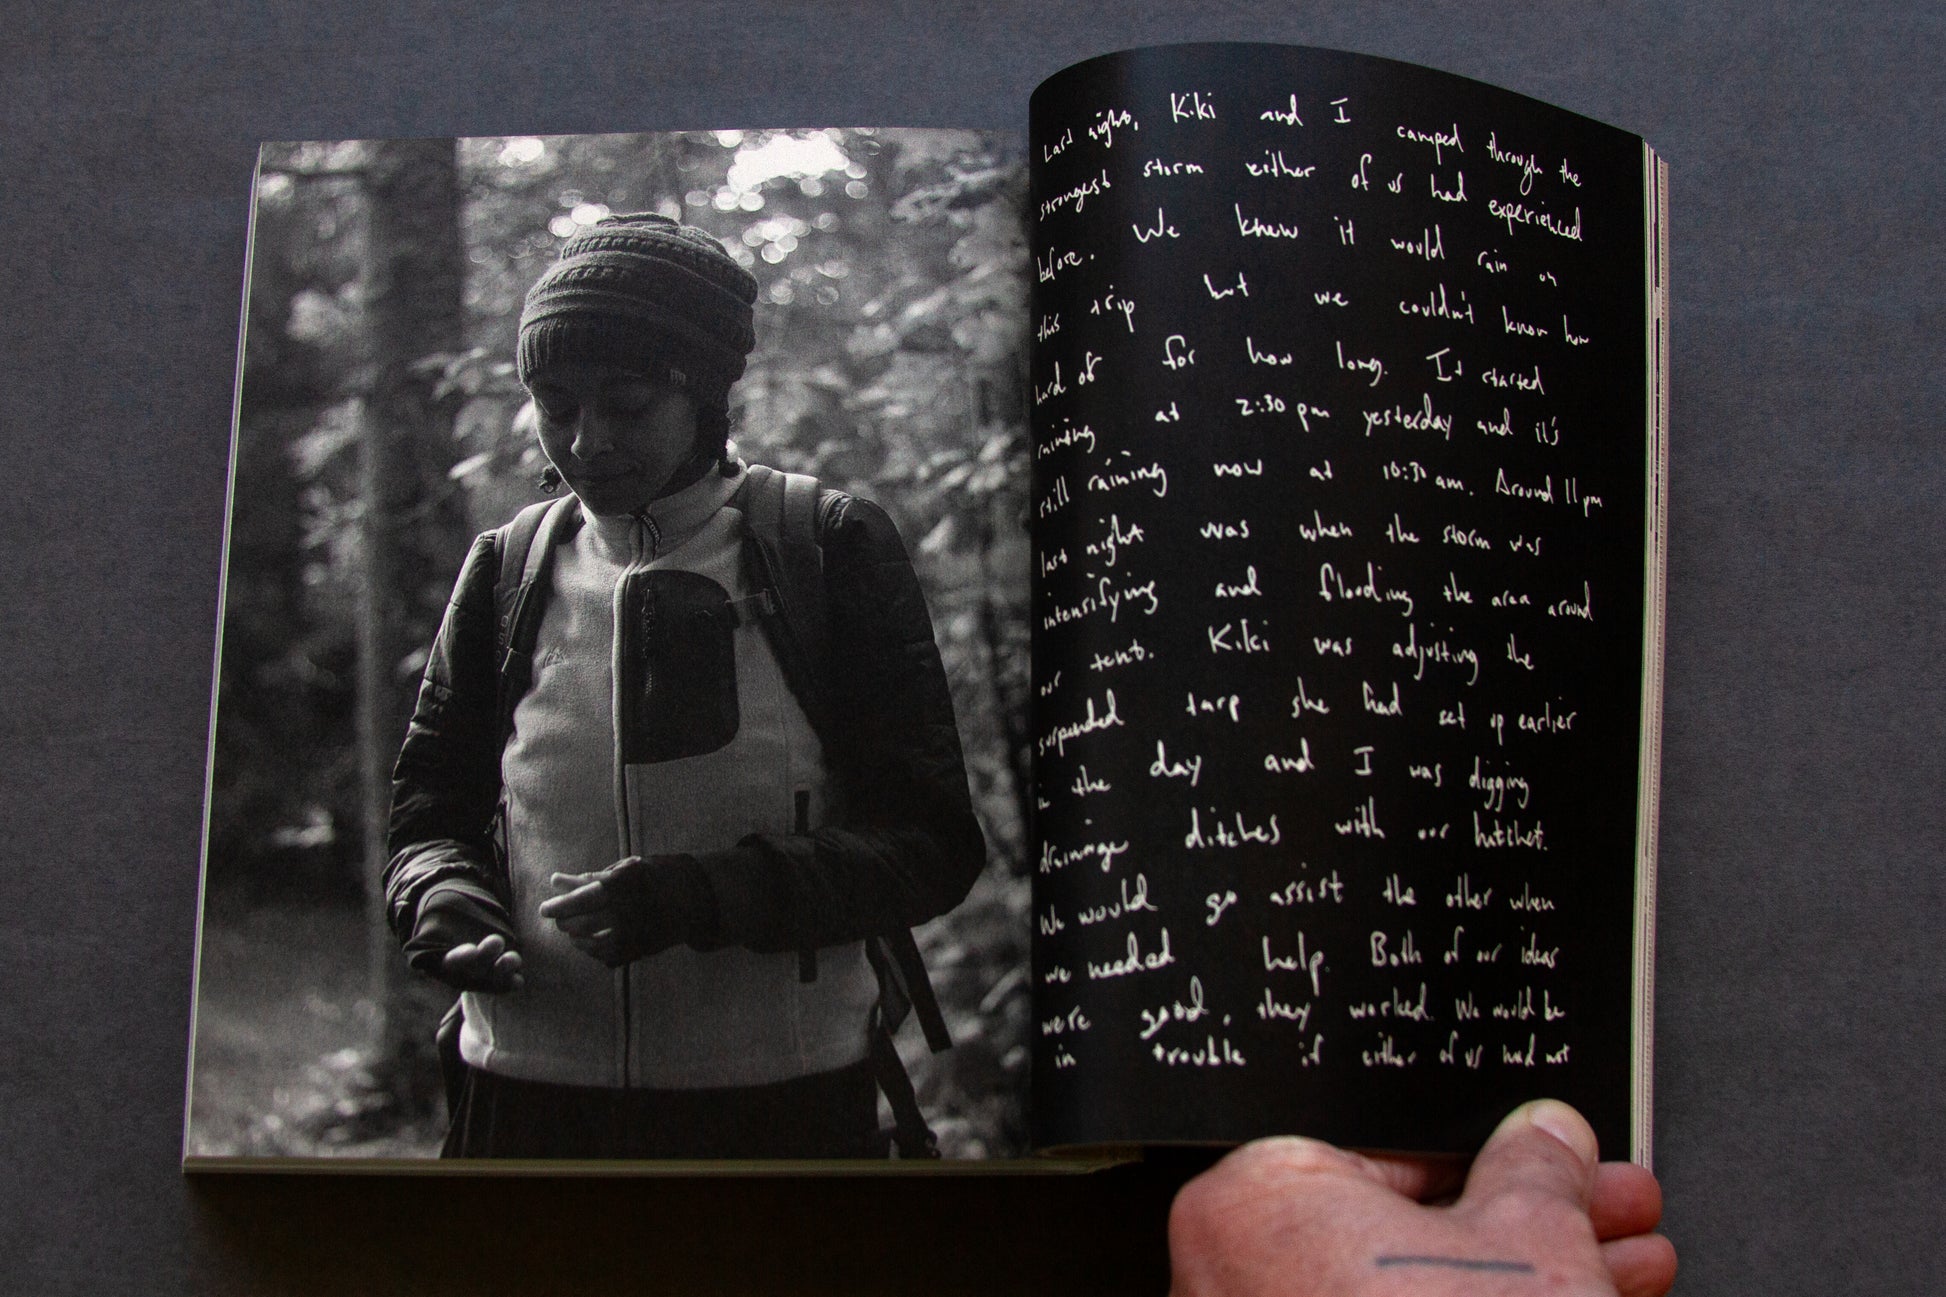 Last night, Kiki and I camped through the
strongest storm either of us had experienced
before. We knew it would rain on
this trip but we couldn't know how
hard or for how long. It started
raining at 2:30 pm yesterday and it's
still raining now at 10:30 am. Around 11 pm
last night was when the storm was
intensifying and flooding the area around
our tent. Kiki was adjusting the
suspended tarp she had set up earlier
in the day and I was digging
drainage ditches with our hatchet.
We would go assist the other when
we needed help. Both of our ideas
were good, they worked. We would be
in trouble if either of us had not